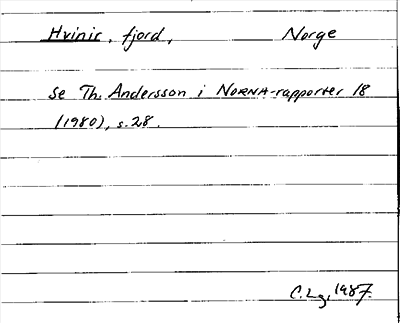 Hvinir, fjord, Norge
se Th. Andersson i NORNA-rapporter 18
(1980), s. 28.
C. Lg, 1987.